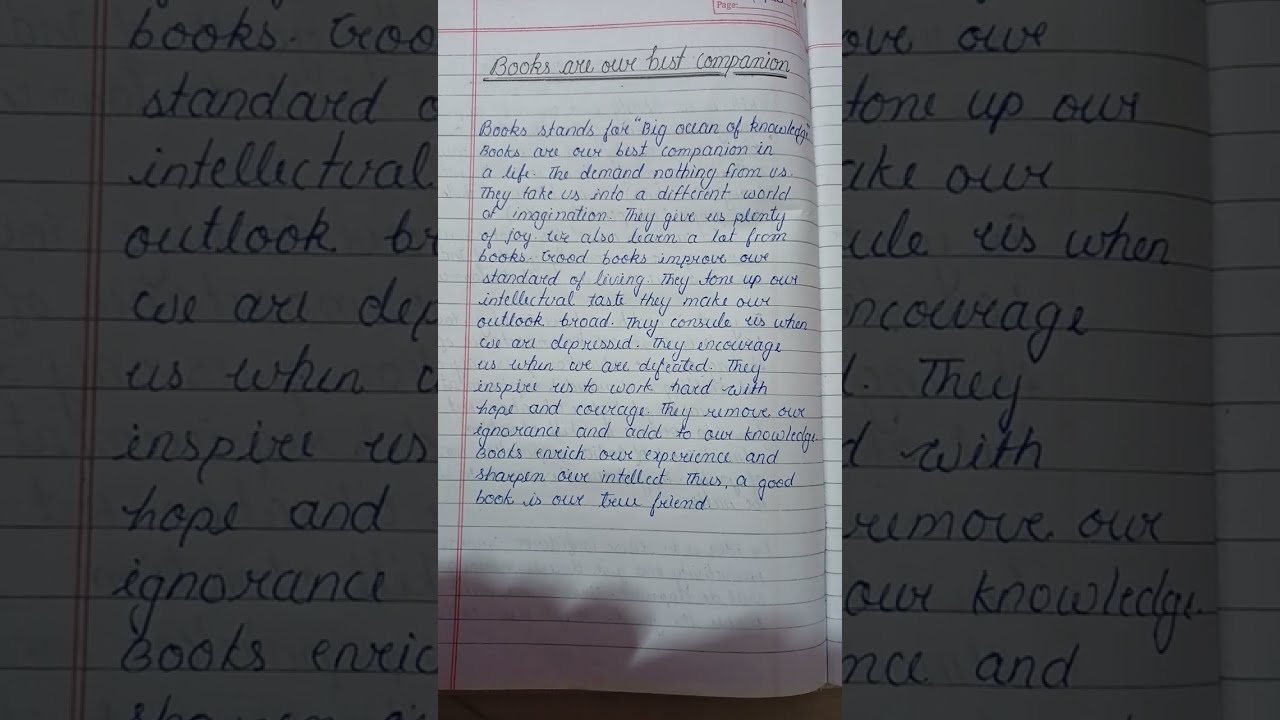 Page:
Books are our best companion
Books stands for "Big ocean of knowledge"
Books are our best companion in
a life. The demand nothing from us.
They take us into a different world
of imagination. They give us plenty
of joy. we also learn a lot from
books. Good books improve our
standard of living. They tone up our
intellectual taste they make our
outlook broad. They consule us when
we are depressed. They encourage
us when we are defeated. They
inspire us to work hard with
hope and courage. They remove our
ignorance and add to our knowledge.
Books enrich our experience and
sharpen our intellect. Thus, a good
book is our true friend.